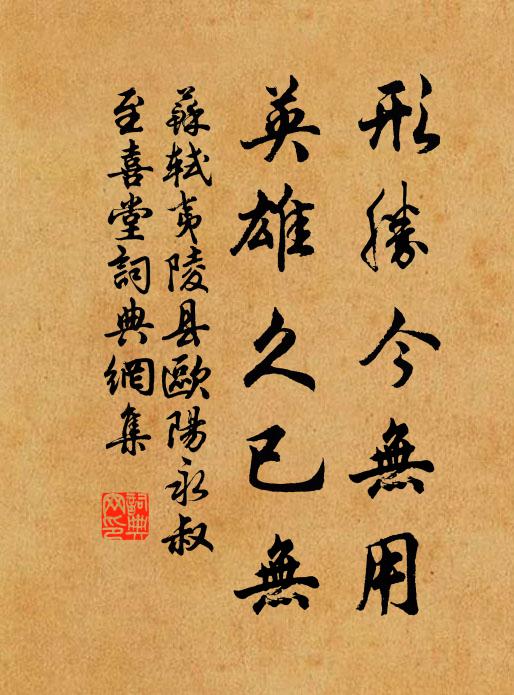 形勝今無用
英雄久已無
蘇軾夷陵县歐陽永叔
至喜堂詞典網集
詞典网印